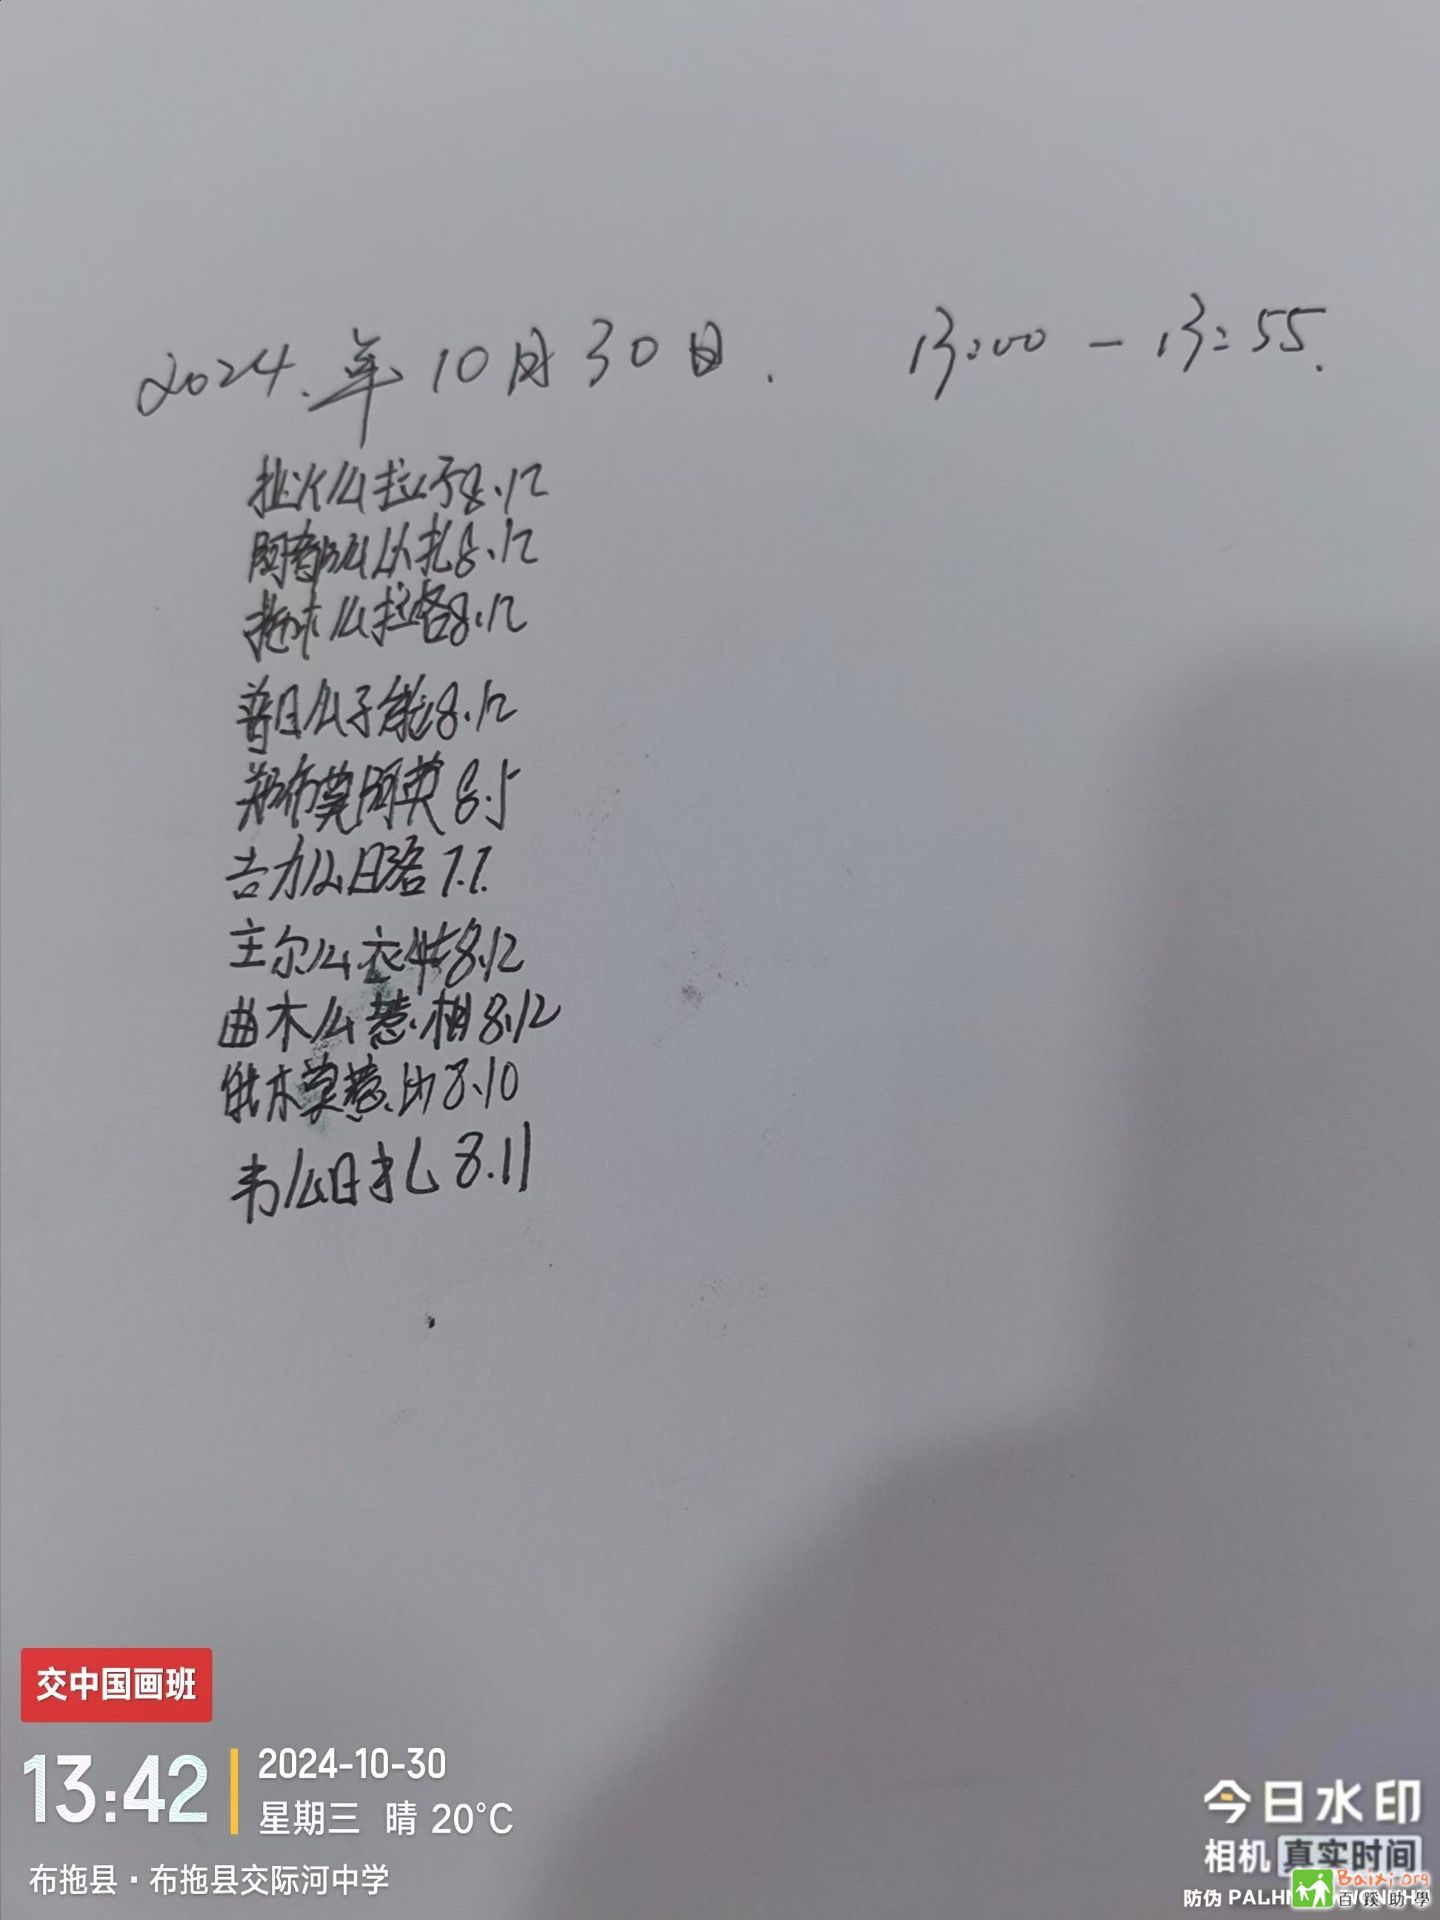 2024.年10月30日. 13:00-13:55.
么拉子8.12
阿都么从扎8.12
么拉各8.12
普日么子能8.12
郑布莫阿英8.5
吉力么日洛7.7.
主尔么衣8.12
曲木么惹相8.12
俄木莫惹以8.10
韦么日扎8.11
交中国画班
13:42
2024-10-30
星期三 晴 20°C
布拖县·布拖县交际河中学
今日水印
相机 真实时间
防伪
Baixi.org
百蹊助學